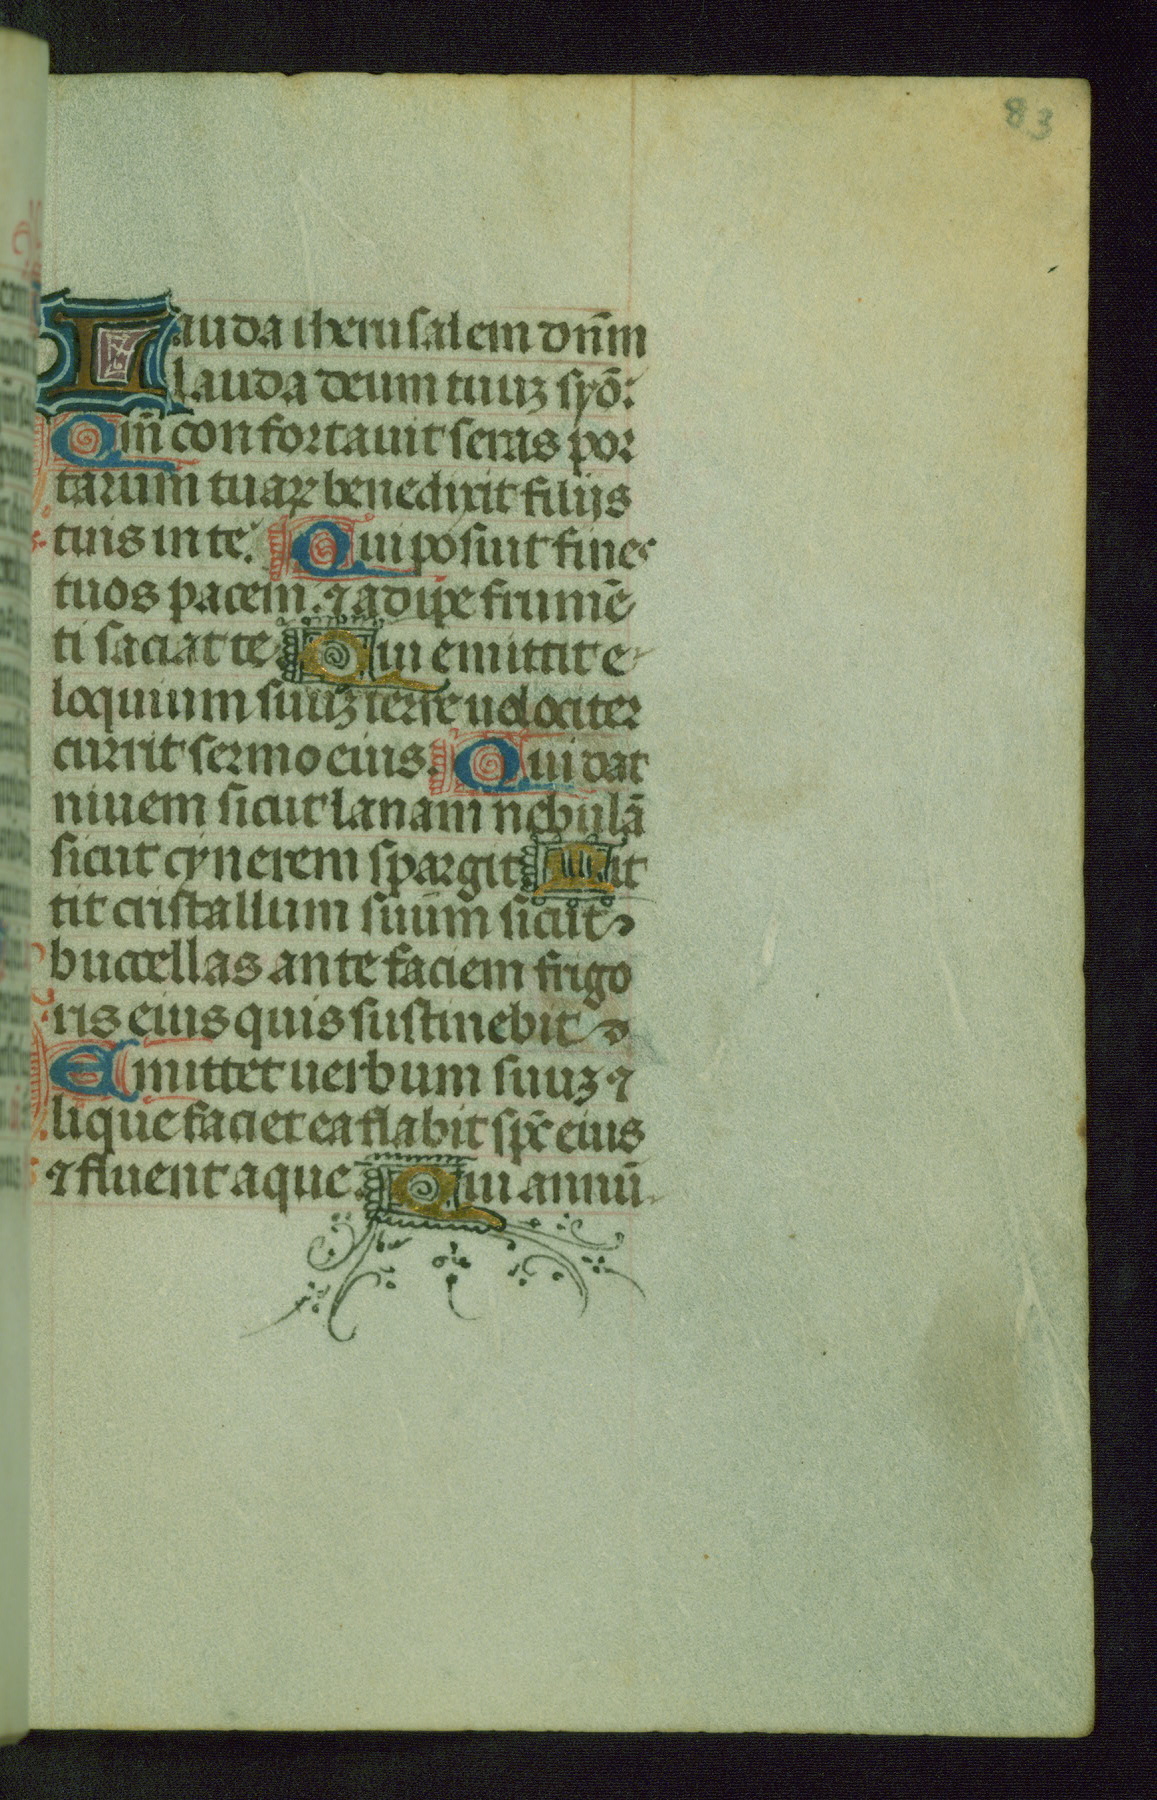 83
Lauda iherusalem dnm̄
lauda deum tuuꝫ syō:
Qm̄ confortauit seras por
tarum tuaꝝ benedixit filijs
tuis in te. Qui posuit fines
tuos pacem. ⁊ adipe frumē
ti saciat te Qui emittit e
loquium suuꝫ terre uelociter
currit sermo eius. Qui dat
niuem sicut lanam nebulā
sicut cynerem spargit Mit
tit cristallum suum sicut
buccellas ante faciem frigo
ris eius quis sustinebit
Emittet uerbum suuꝫ ⁊
lique faciet ea flabit spc̄ eius
⁊ fluent aque. Qui annū